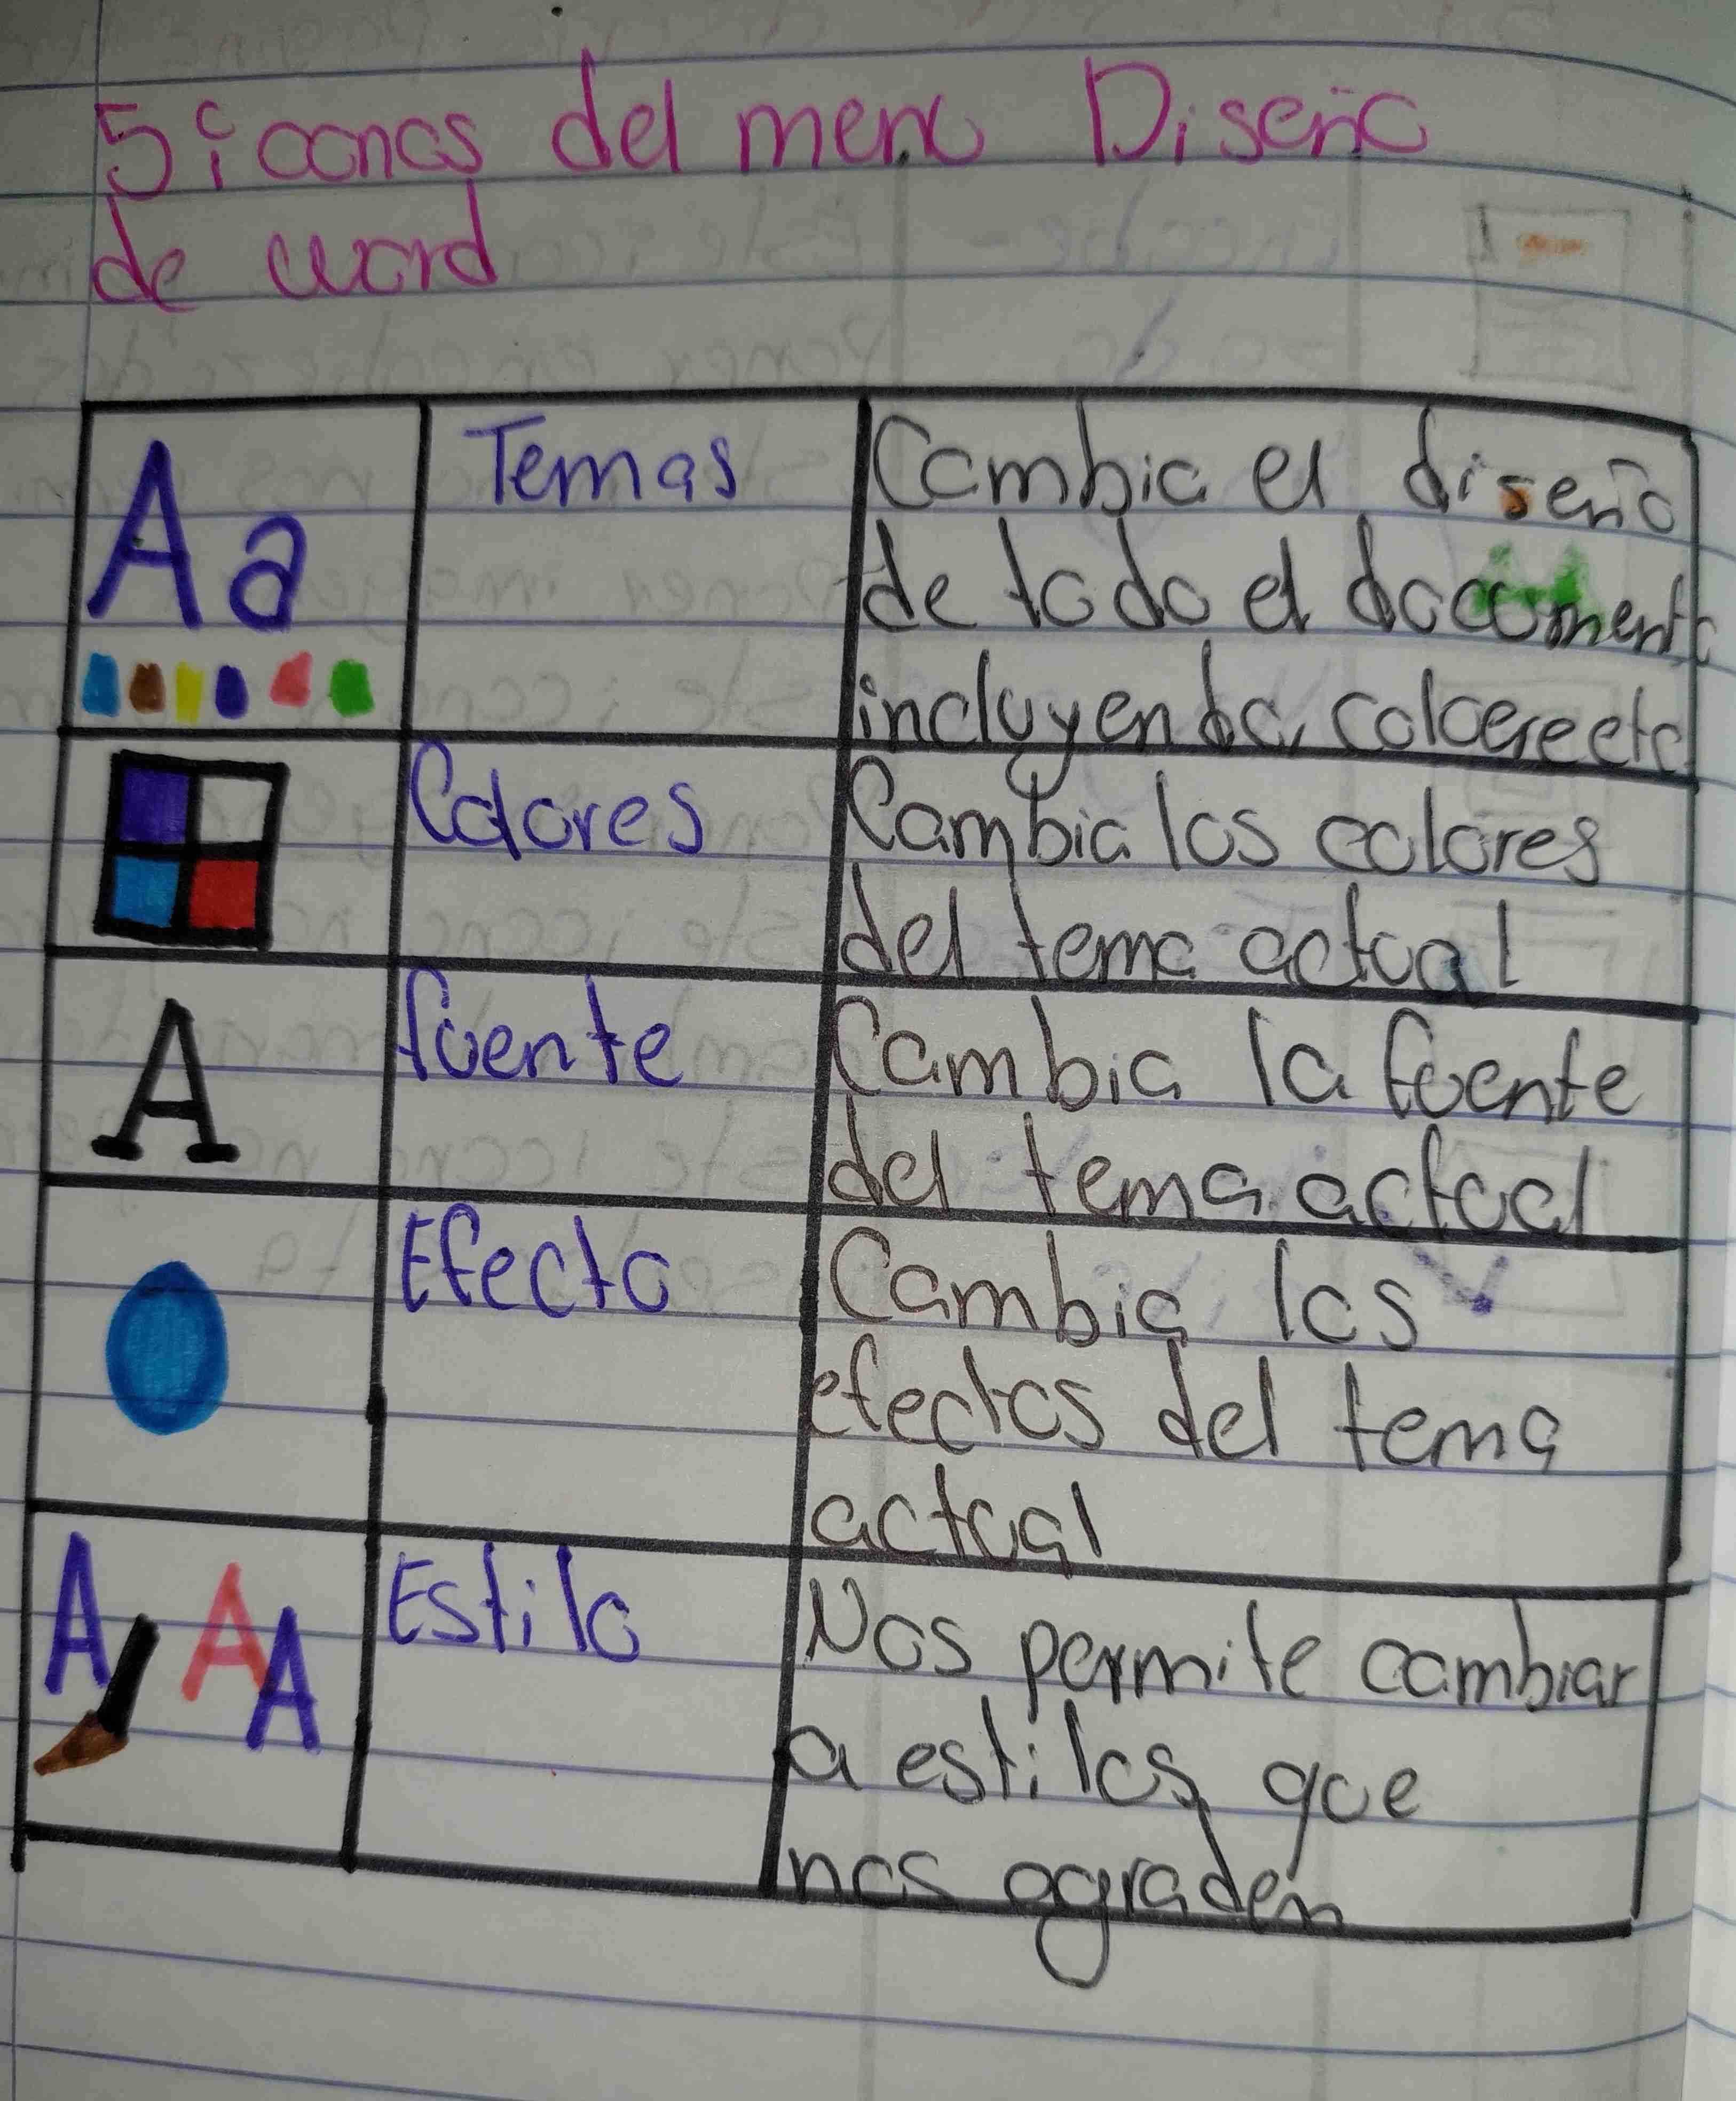 5 iconos del menu Diseño
de word
Aa
Temas
Cambia el diseño
de todo el documento
incluyendo, colores etc
Colores
Cambia los colores
del tema actual
A
fuente
Cambia la fuente
del tema actual
Efecto
Cambia los
efectos del tema
actual
A A A
Estilo
Nos permite cambiar
a estilos que
nos agraden